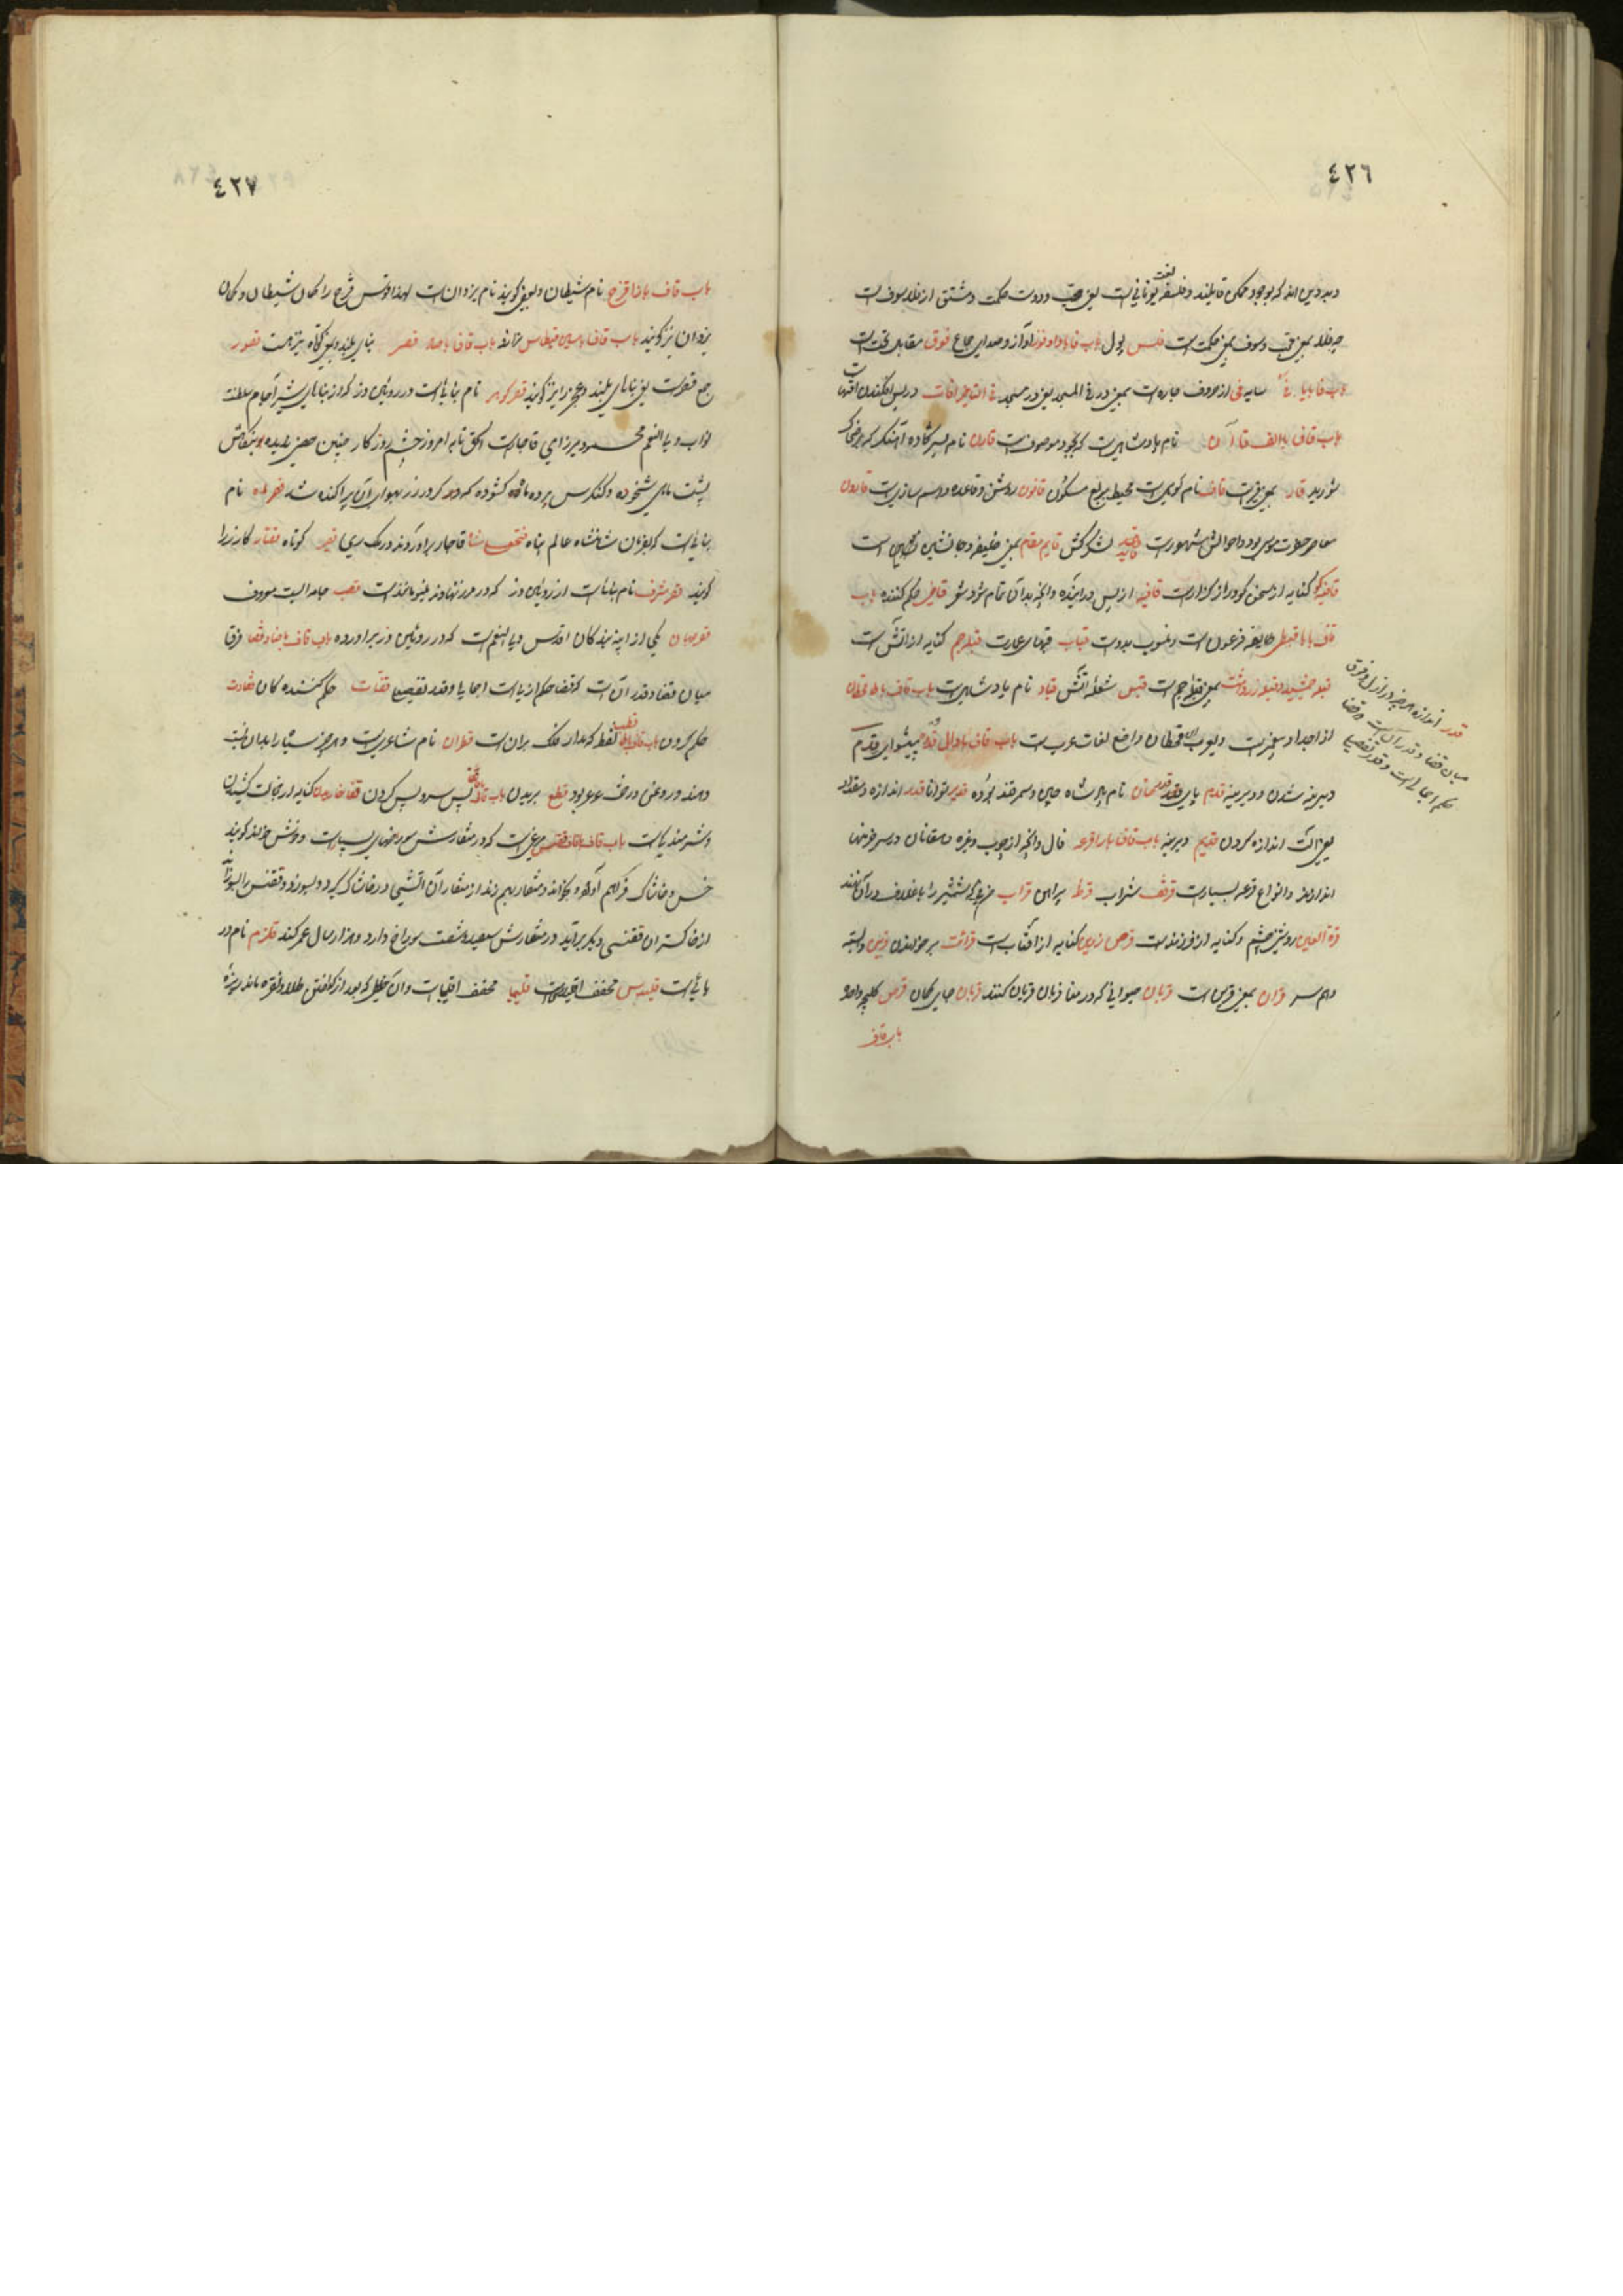 ٤٢٦
و بی دین اند که بوجود ممکن قایلند و فلسفه لغت یونانی است یعنی محب و دوست حکمت و مشتق از فلا سوف است
چه فلا بمعنی محب و سوف بمعنی حکمت است فلس پول باب فا با واو فوز آواز و صدای جماع فوق مقابل تحت است
باب فا با یا فی سایه فی از حروف جاره است بمعنی در فی المسجد یعنی در مسجد فی التاخیر آفات در پس افکندن آفتهاست
باب قاف با الف قاآن نام پادشاهیست که بجود موصوف است قارن نام پسر کاوه آهنگر که بر ضحاک
شورید قار بمعنی قیر است قاف نام کوهی است محیط بربع مسکون قانون روش و قاعده و اسم سازیست قارون
معاصر حضرت موسی بود و احوالش مشهور است قاید لشکرکش قایم مقام بمعنی خلیفه و جانشین است
قافیه گو کنایه از سخن گو و راز گذار است قافیه از پس درآینده و آنچه بدان تمام شود شعر قاضی حکم کننده باب
قاف با با قبطی طایفه فرعون است و منسوب بدوست قباب قبهای عمارت قبله جم کنایه از آتش است
قبله جمشید و قبله زردشت بمعنی قبله جم است قبس شعله آتش قباد نام پادشاهیست باب قاف با حا قحطان
از اجداد پیغمبر است و یعرب ابن قحطان واضع لغات عرب است باب قاف با دال قدوه پیشوای قدم
دیرینه شدن و دیرینه قدم پای قدرخان نام پادشاه چین و سمرقند بوده قدیر توانا قدر اندازه و مقدار
یعنی اندازه کردن قدیم دیرینه باب قاف با را قرعه فال و آنچه از چوب و غیره دهقانان در سر خرمنها
اندازند و انواع قرعه بسیار است قرقف شراب قرط پیراهن قراب چرمی که شمشیر را با غلاف در آن نهند
قرة العین روشنی چشم و کنایه از فرزند است قرص زرین کنایه از آفتاب است قرائت بر خواندن قرین وابسته
و هم سر قران بمعنی قرین است قربان حیوانی که در منا قربان کنند قربان جای کمان قرص کلیچه واحد
باب قاف
قدر اندازه هر چیز در ازل و فرق
میان قضا و قدر آنست که قضا
حکم اجمالی است و قدر تفصیلی
٤٢٧
باب قاف با زا قزح نام شیطان و بعضی گویند نام یزدان است لهذا قوس قزح را کمان شیطان و کمان
یزدان نیز گویند باب قاف با سین قسطاس ترازو باب قاف با صاد قصر بنای بلند و بمعنی کوتاه نیز هست قصور
جمع قصر است یعنی بناهای بلند و عجز را نیز گویند قصر گوهر نام بنائیست در روئین دز که از بناهای شیر آجام سلطنت
نواب دریا النجم محمود میرزای قاجار است الحق تا به امروز چشم روزگار چنین حصنی ندیده بویژه کاخش
پشت ماهی شخوده و کنگرس پرده ماه گشوده که دو کرور زر بهوای آن پراکنده شد قصر نام
بنائیست که بفرمان شاهنشاه عالم پناه فتحعلی شاه قاجار برآوردند در ملک ری قصیر کوتاه قصار گازر را
گویند قصر شرف نام بنائیست از روئین دز که در مرز نهاوند مینو مانند است قصب جامه ایست معروف
قصر جهان یکی از ابنیه بندگان اقدس دریا النجم است که در روئین دز برآورده باب قاف با ضاد قضا فرق
میان قضا و قدر آنست که قضا حکم ازلی است اجمالی و قدر تفصیلی قضات حکم کنندگان قضاوت
حکم کردن باب قاف با طا قطب نقطه که مدار فلک بران است قطران نام شاعریست و هر چیز سیاه را بدان نسبت
دهند و روغن درخت عرعر بود قطع بریدن باب قاف با فا قفا پس سر و پس گردن قفا خاریدن کنایه از خجالت کشیدن
و شرمندگیست باب قاف با قاف ققنس مرغی است که در منقارش سوراخهای بسیار است و خوش خواند گویند
خس و خاشاک فراهم آورد و بخواند و منقار بهم زند از منقار آن آتشی در خاشاک گیرد و بسوزد و ققنس را بسوزاند
از خاکستر آن ققنسی دیگر برآید در منقارش سیصد و شصت سوراخ دارد و هزار سال عمر کند قلزم نام در
یائیست قلیدس مخفف اقلیدس است قلیمیا مخفف اقلیمیاست و آن ثفلی که بعد از گداختن طلا و نقره ماند ریزه